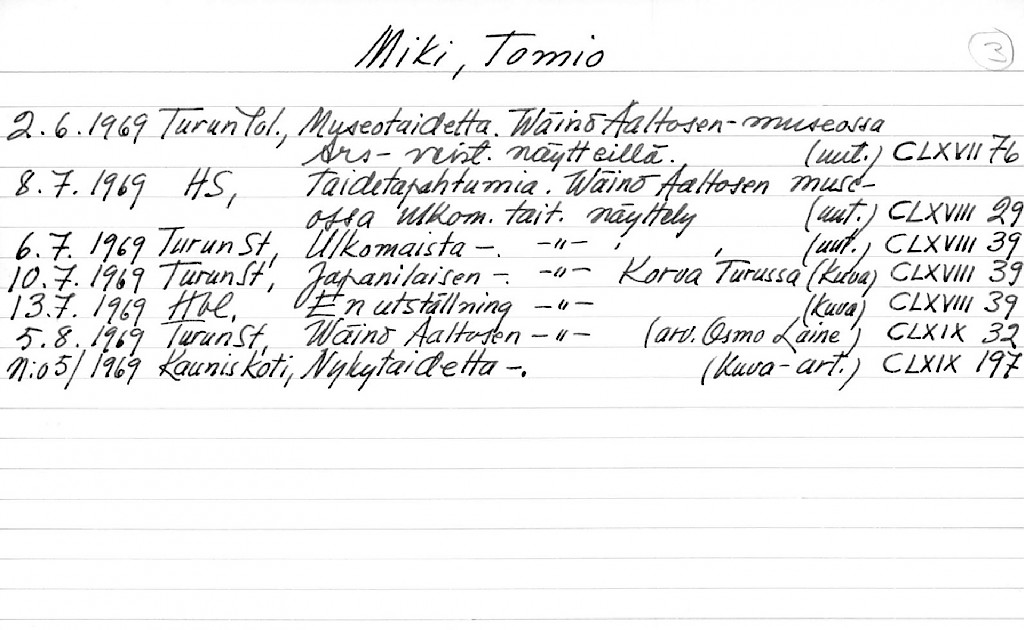 Miki, Tomio
3
2.6.1969 Turun Pol., Museotaidetta. Wäinö Aaltosen-museossa
Ars-veist. näytteillä. (uut.) CLXVII 76
8.7.1969 HS, Taidetapahtumia. Wäinö Aaltosen muse-
ossa ulkom. tait. näyttely (uut.) CLXVIII 29
6.7.1969 Turun St, Ulkomaista -. -"- , , (uut.) CLXVIII 39
10.7.1969 Turun St, Japanilaisen -. -"- Korva Turussa (kuva) CLXVIII 39
13.7.1969 Hbl. En utställning -"- (kuva) CLXVIII 39
5.8.1969 Turun St, Wäinö Aaltosen -"- (arv. Osmo Laine) CLXIX 32
N:o 5/1969 Kaunis Koti, Nykytaidetta -. (kuva-art.) CLXIX 197